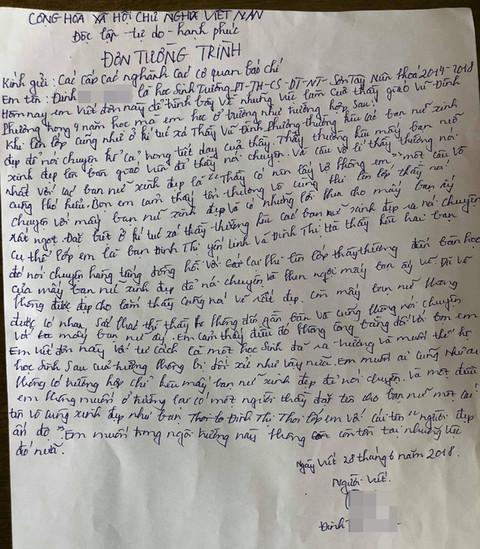 CỘNG HÒA XÃ HỘI CHỦ NGHĨA VIỆT NAM
Độc lập - tự do - hạnh phúc
ĐƠN TƯỜNG TRÌNH
Kính gửi: Các cấp các nghành các cơ quan báo chí
Em tên: Đinh là học sinh Trường PT-TH-CS-DT-NT- Sơn Tây Niên khóa 2014-2018
Hôm nay em viết đơn này để trình bày về những việc làm của thầy giáo Vũ Đình
Phương trong 4 năm học mà em học ở trường như trường hợp sau:
Khi lên lớp cũng như ở kí túc xá Thầy Vũ Đình Phương thường hữu các bạn nữ xinh
đẹp để nói chuyện kể cả trong tiết dạy của thầy. Thầy thường hữu mấy bạn nữ
xinh đẹp lên bàn giáo viên để thầy nói chuyện. Và câu vô lí thầy thường nói
nhất với các bạn nữ xinh đẹp là "Thầy có nên lấy vợ không em" một câu vô
cùng thô thiển. Bọn em cảm thấy tổn thương vô cùng khi lên lớp thầy nói
chuyện với mấy bạn nữ xinh đẹp và có những lời khen cho mấy bạn ấy
rất ngọt. Đặt biệt ở kí túc xá thầy thường hữu các bạn nữ xinh đẹp ra nói chuyện
cụ thể lớp em là bạn Đinh Thị Yến Linh và Đinh Thị Hà thầy hữu hai bạn
đó nói chuyện hàng tiếng đồng hồ. Với các lần khi lên lớp thầy thường đến bàn học
của mấy bạn nữ xinh đẹp để nói chuyện và khen ngợi mấy bạn ấy vô
không được đẹp cho lắm thầy cũng nói về nét đẹp. Còn mấy bạn nữ không
được có nhan sắc thì thầy không đến gần bàn và cũng không nói chuyện
với mấy bạn nữ ấy. Em cảm thấy điều đó không công bằng đối với bọn em
Em viết đơn này với tư cách là một học sinh đã ra trường và muốn thế hệ
học sinh sau của trường không bị đối xử như vậy nữa. Em muốn ai cũng như ai
không có trường hợp chỉ hữu mấy bạn nữ xinh đẹp để nói chuyện. Và một điều
em không muốn ở trường lại có một người thầy đặt tên cho bạn nữ một cái
tên vô cùng xinh đẹp như bạn Đinh Thị Thơi lớp em với cái tên "người đẹp
ấn độ". Em muốn trong ngôi trường này không còn tồn tại những việc
đó nữa.
Ngày viết 28 tháng 6 năm 2018.
Người viết
Đinh